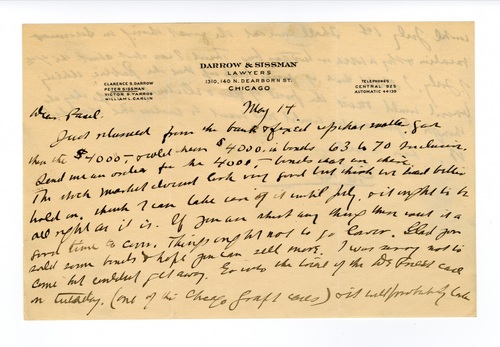 DARROW & SISSMAN
LAWYERS
1310, 140 N. DEARBORN ST.
CHICAGO
CLARENCE S. DARROW
PETER SISSMAN
VICTOR S. YARROS
WILLIAM L. CARLIN
TELEPHONES
CENTRAL 925
AUTOMATIC 44-139
May 17
Dear Paul.
Just returned from the bank & fixed up that matter. Got
them the $4000- & sold them $4000. in bonds 63 to 70 inclusive.
Send me an order for the 4000,- bonds
The stock market doesnt look very good but think we had better
hold on, think I can take care of it until July, & it ought to be
all right as it is. If you are short any thing this next is a
good time to Things ought not to go lower. Glad you
sold some bonds & hope you can sell more. I was sorry not to
come but couldnt get away. Go into the trial of the case
on Tuesday. (one of the Chicago graft cases) & it will probably take